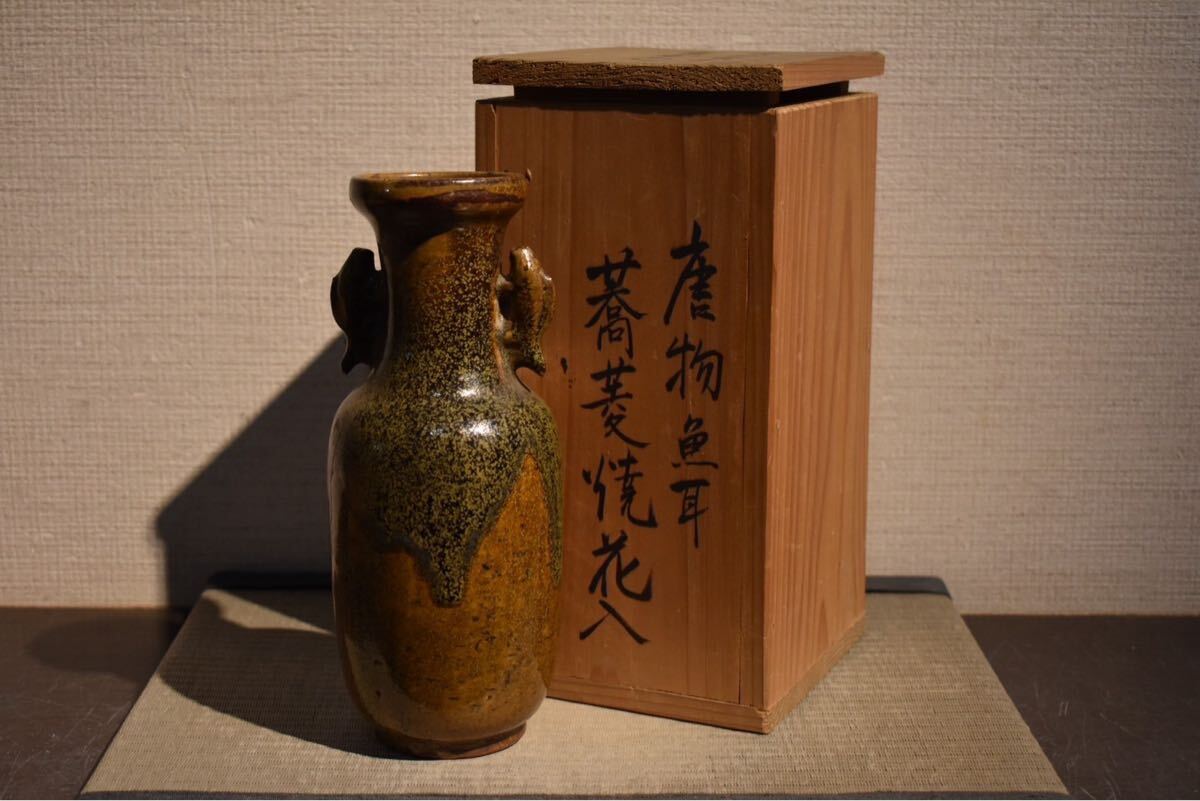 唐物魚耳
蕎麦焼花入